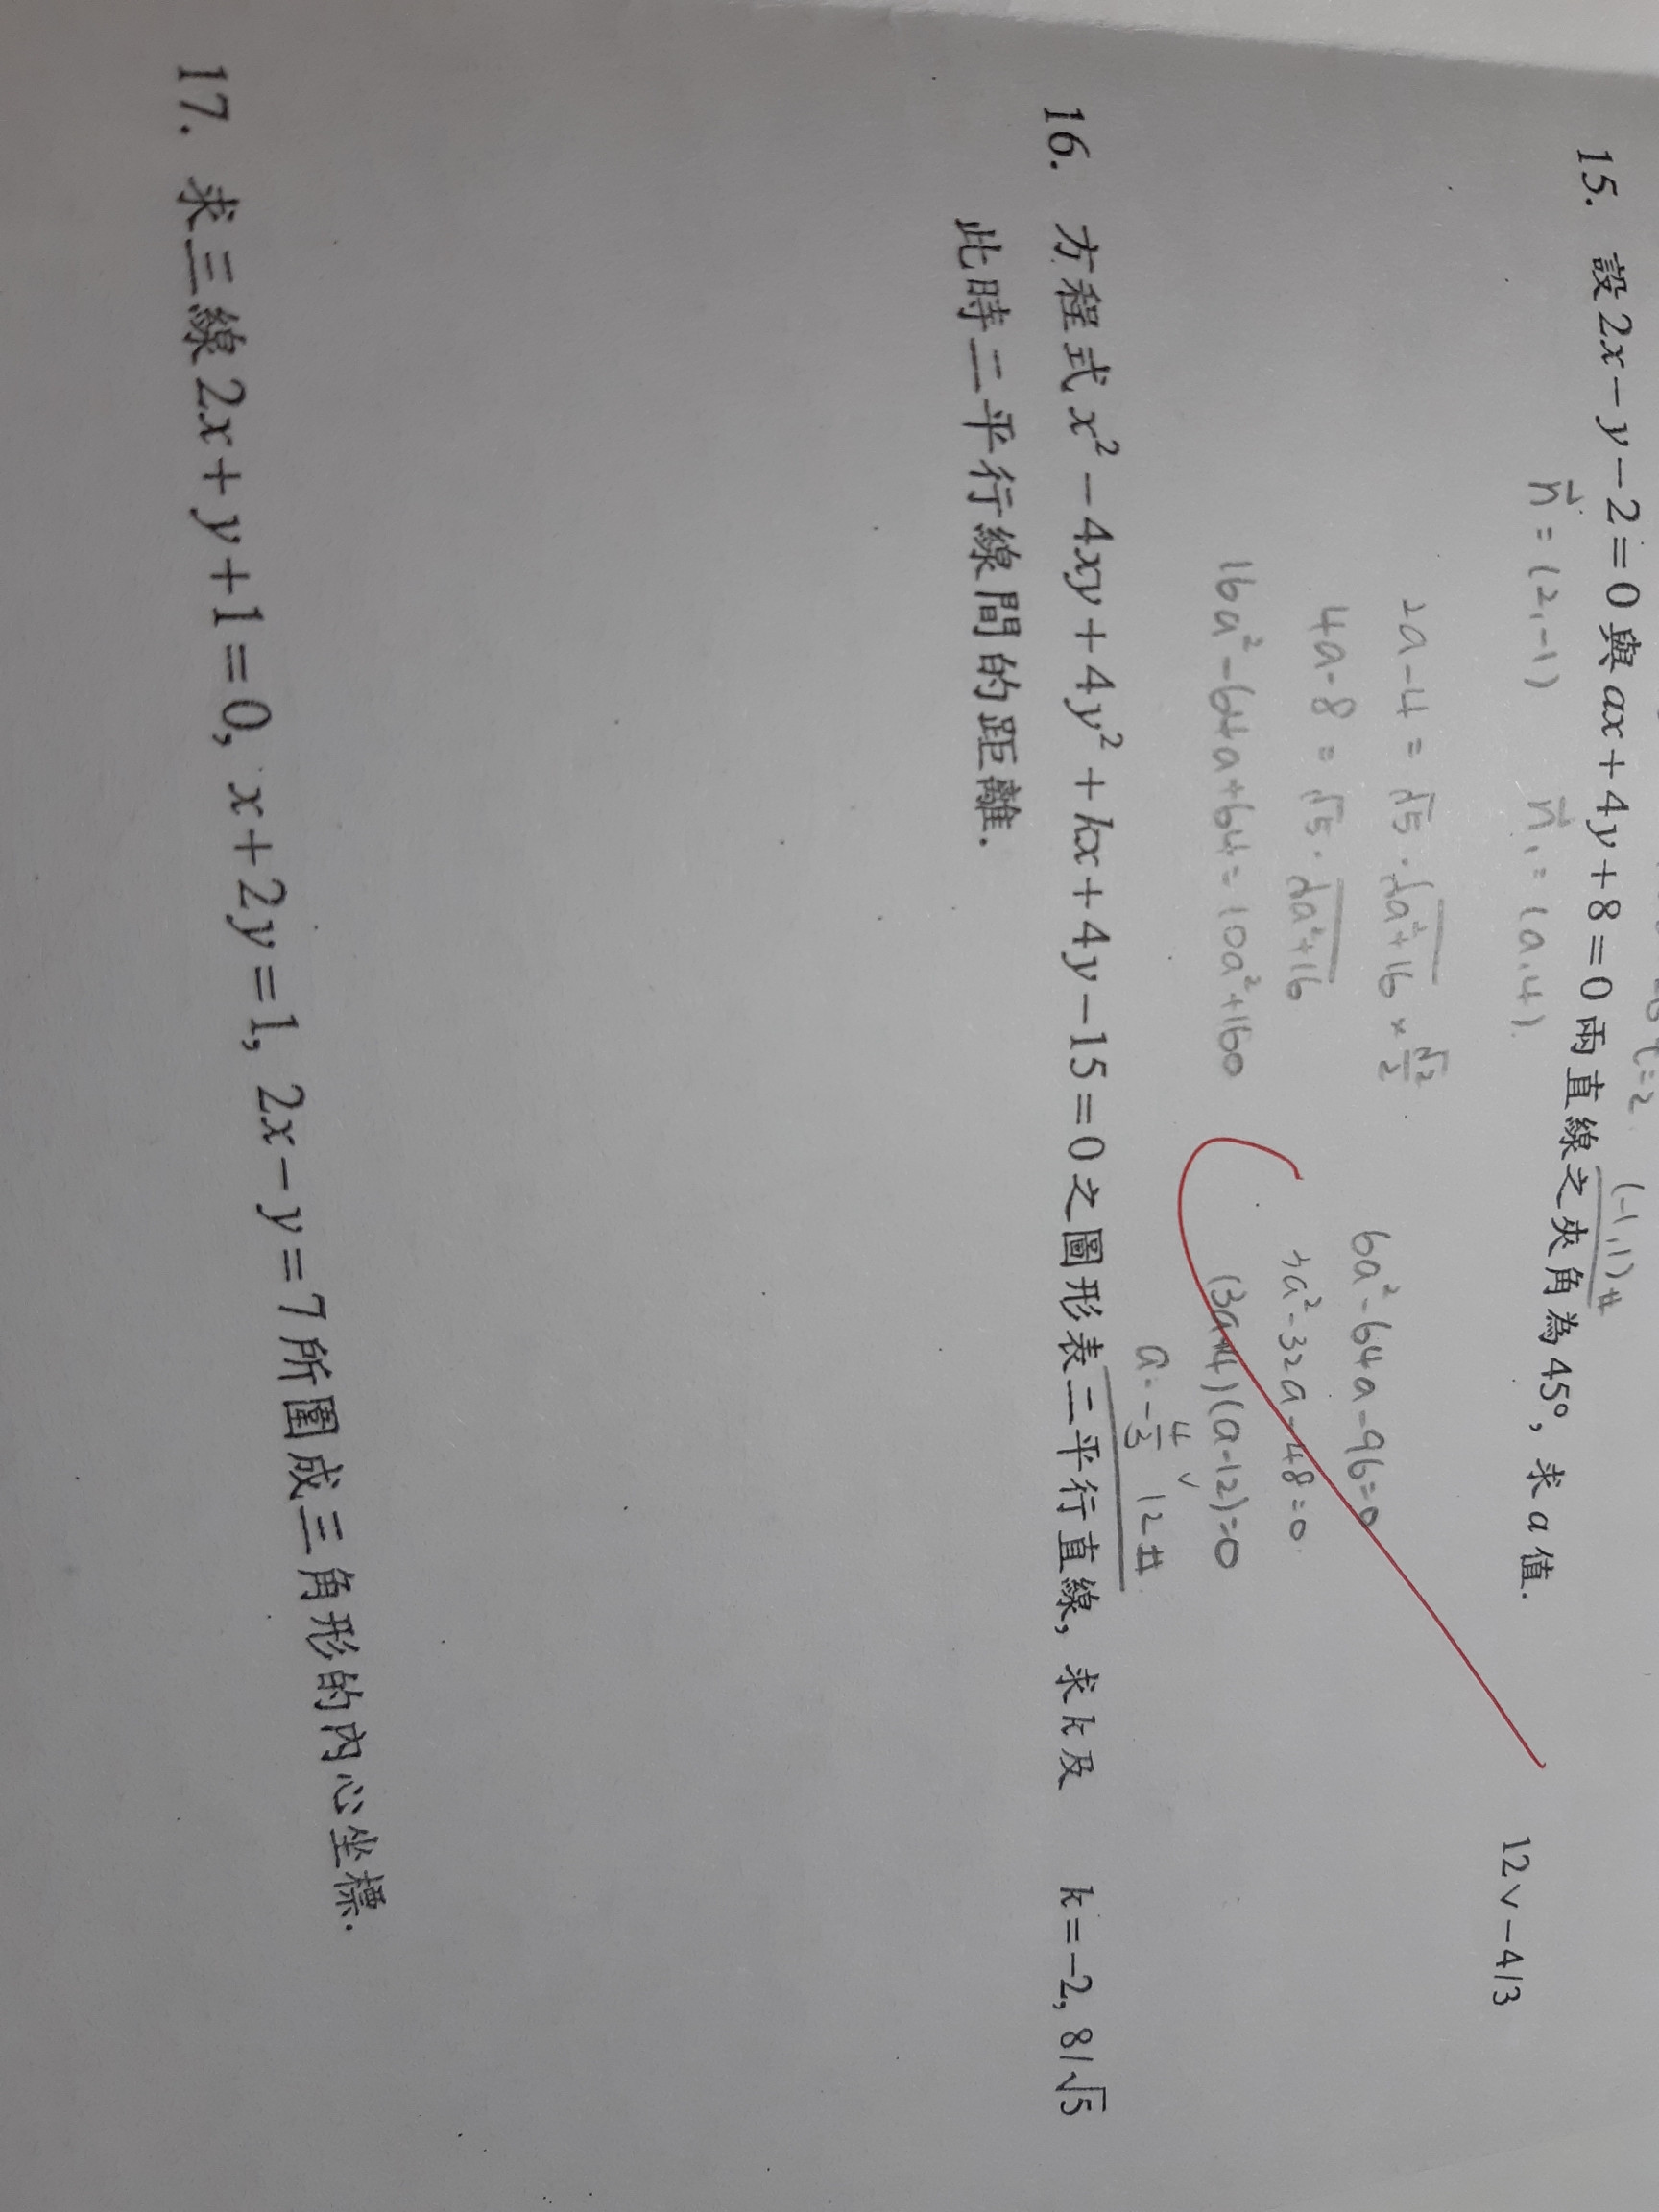 t=2
(-1,1)#
15. 設2x−y−2=0與ax+4y+8=0兩直線之夾角為45°, 求a值.
12∨−4/3
n⃗=(2,-1) n⃗₁=(a,4)
2a-4=√5·√a²+16 × √2/2
4a-8=√5·√2a²+16
16a²-64a+64=10a²+160
6a²-64a-96=0
3a²-32a-48=0
(3a+4)(a-12)=0
a=-4/3 ∨ 12#
16. 方程式x²−4xy+4y²+kx+4y−15=0之圖形表二平行直線, 求k及
k=−2, 8/√5
此時二平行線間的距離.
17. 求三線2x+y+1=0, x+2y=1, 2x−y=7所圍成三角形的內心坐標.